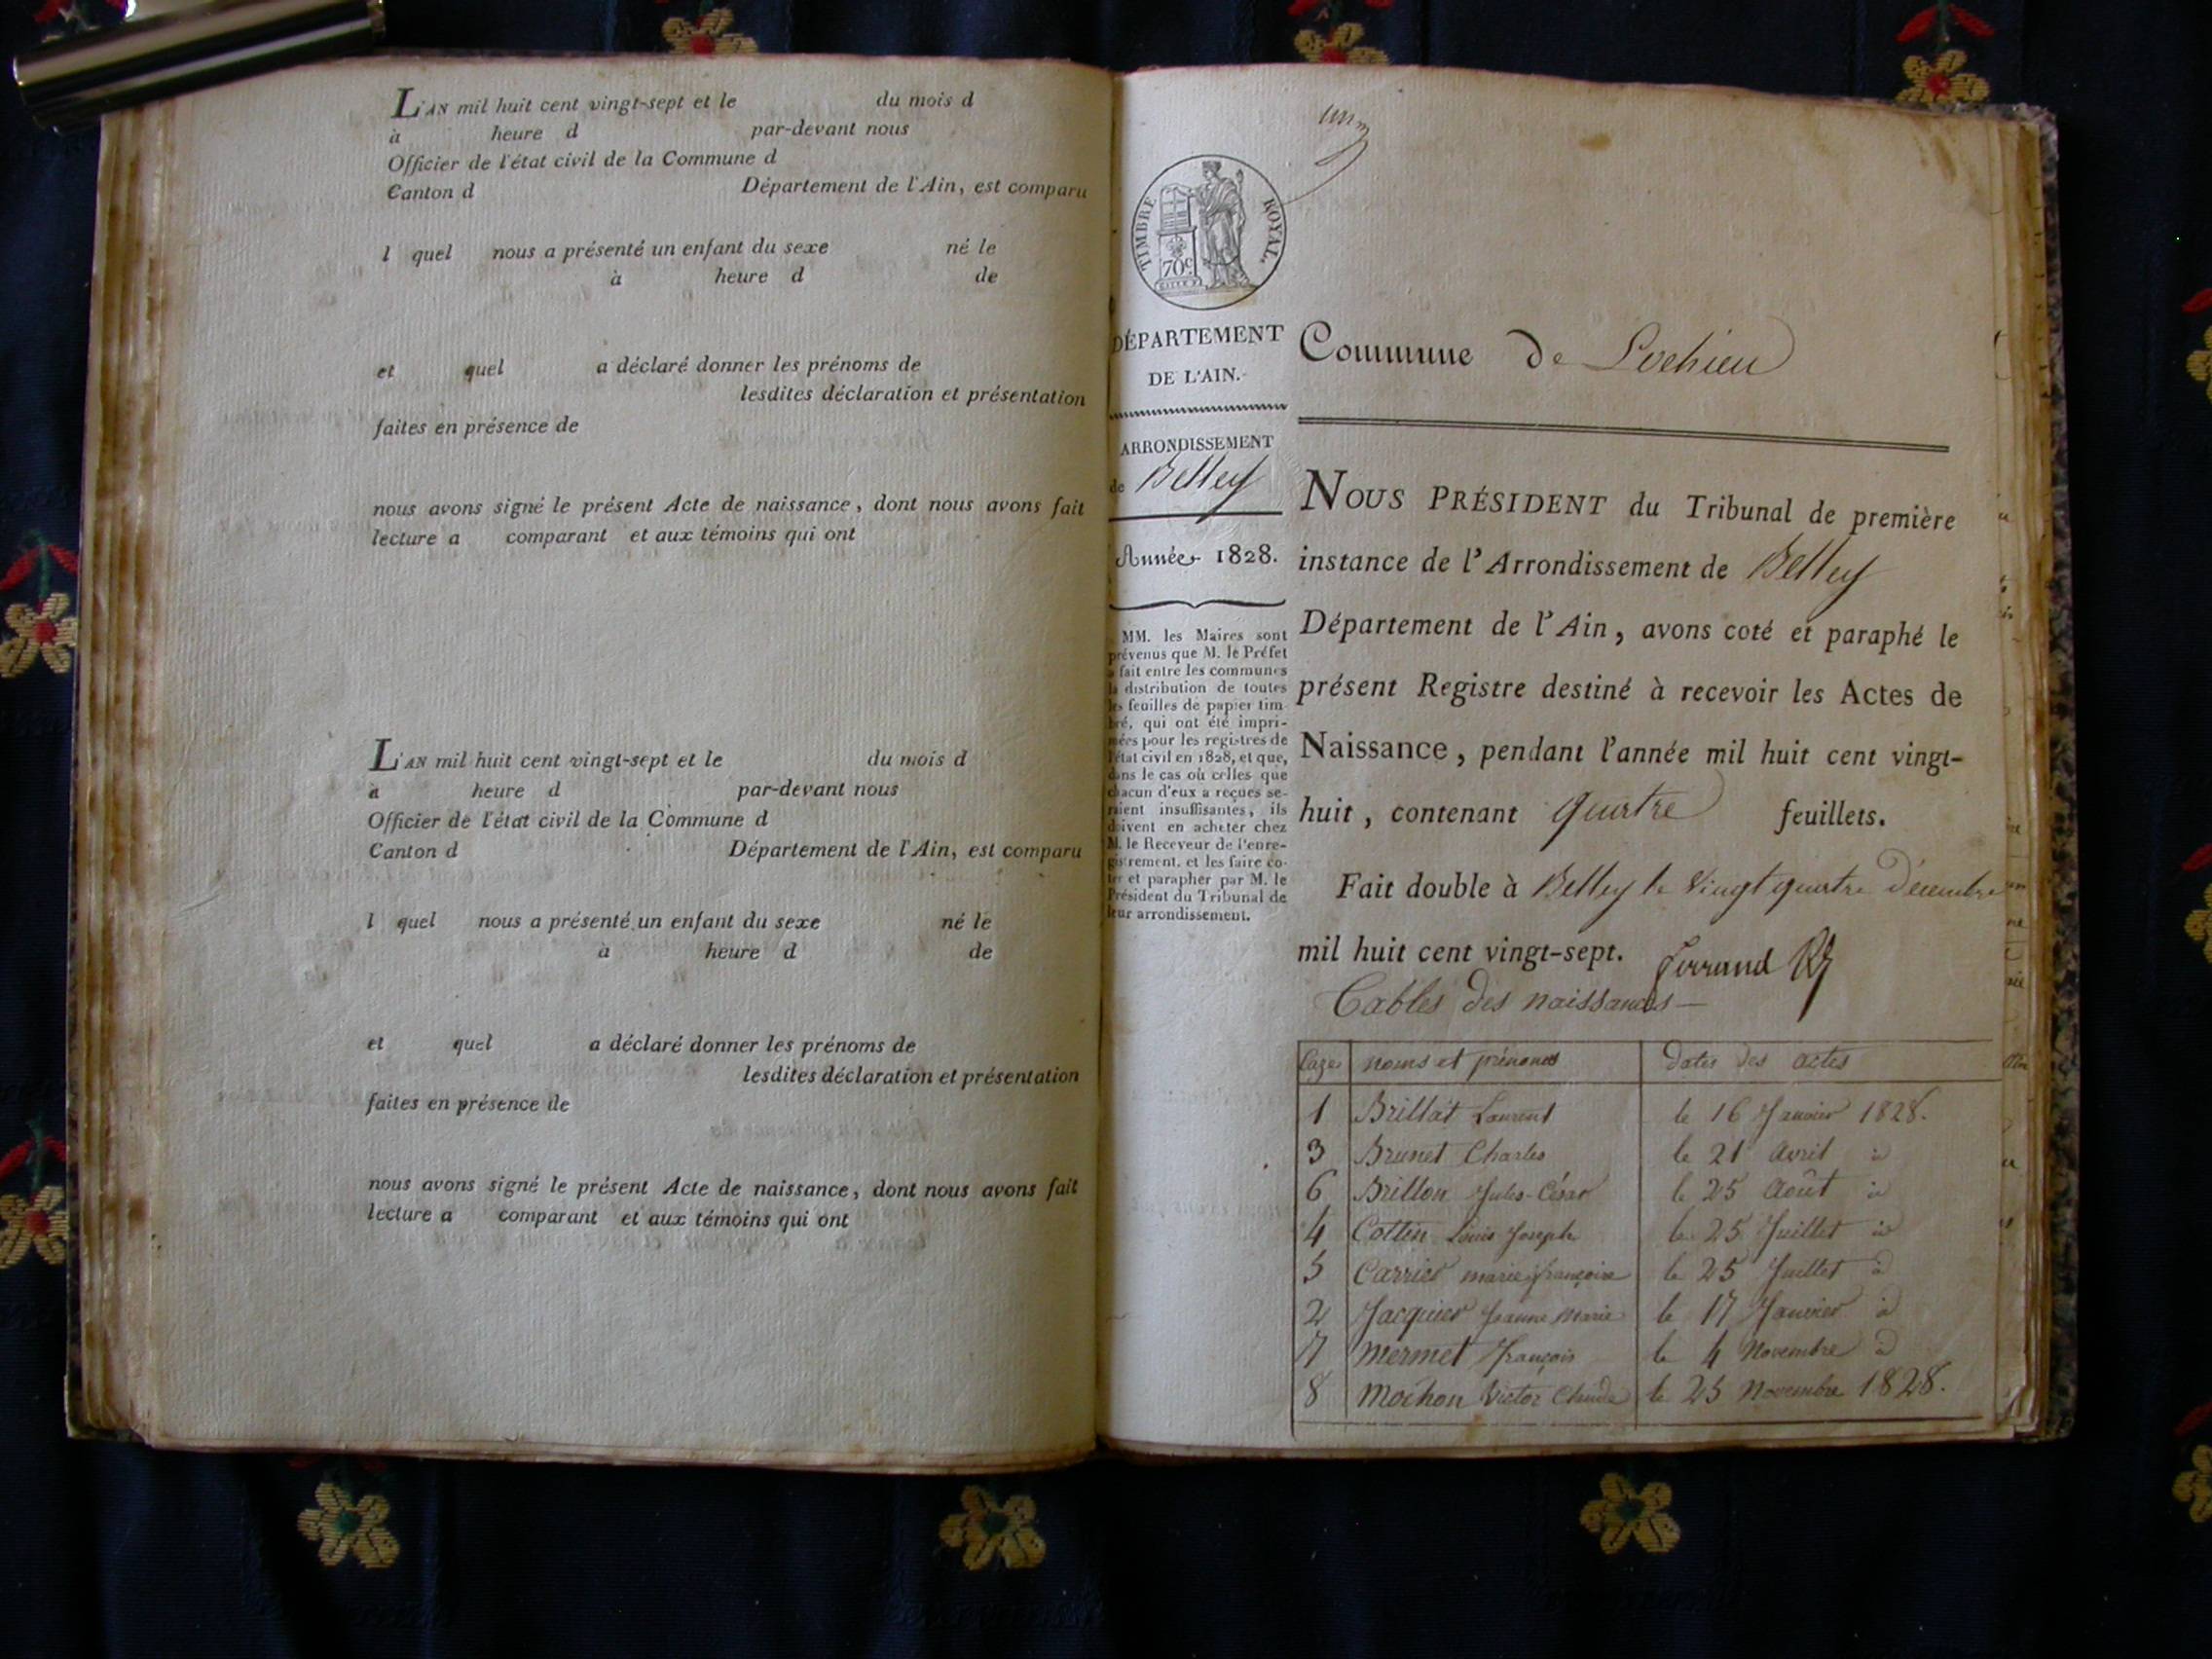 L'AN mil huit cent vingt-sept et le du mois d
à heure d par-devant nous
Officier de l'état civil de la Commune d
Canton d Département de l'Ain, est comparu
l quel nous a présenté un enfant du sexe né le
à heure d de
et quel a déclaré donner les prénoms de
lesdites déclaration et présentation
faites en présence de
nous avons signé le présent Acte de naissance, dont nous avons fait
lecture a comparant et aux témoins qui ont
L'AN mil huit cent vingt-sept et le du mois d
a heure d par-devant nous
Officier de l'état civil de la Commune d
Canton d Département de l'Ain, est comparu
l quel nous a présenté un enfant du sexe né le
à heure d de
et quel a déclaré donner les prénoms de
lesdites déclaration et présentation
faites en présence de
nous avons signé le présent Acte de naissance, dont nous avons fait
lecture a comparant et aux témoins qui ont
TIMBRE ROYAL.
70c
DÉPARTEMENT
DE L'AIN.
ARRONDISSEMENT
de Belley
Année 1828.
MM. les Maires sont
prévenus que M. le Préfet
a fait entre les communes
la distribution de toutes
les feuilles de papier tim-
bré, qui ont été impri-
mées pour les registres de
l'état civil en 1828, et que,
dans le cas où celles que
chacun d'eux a reçues se-
raient insuffisantes, ils
doivent en acheter chez
M. le Receveur de l'enre-
gistrement, et les faire co-
ter et parapher par M. le
Président du Tribunal de
leur arrondissement.
Commune de Lochieu
NOUS PRÉSIDENT du Tribunal de première
instance de l'Arrondissement de Belley
Département de l'Ain, avons coté et paraphé le
présent Registre destiné à recevoir les Actes de
Naissance, pendant l'année mil huit cent vingt-
huit, contenant quatre feuillets.
Fait double à Belley le vingt quatre décembre
mil huit cent vingt-sept. Ferrand
Tables des naissances
Pages noms et prénoms Dates des actes
1 Brillat Laurent le 16 Janvier 1828.
3 Brunet Charles le 21 avril id
6 Brillon Jules-César le 25 Août id
4 Cottin Louis Joseph le 25 Juillet id
5 Carrier marie françoise le 25 Juillet id
2 Jacquier Jeanne Marie le 17 Janvier id
7 mermet François le 4 Novembre id
8 mochon Victor Claude le 25 Novembre 1828.